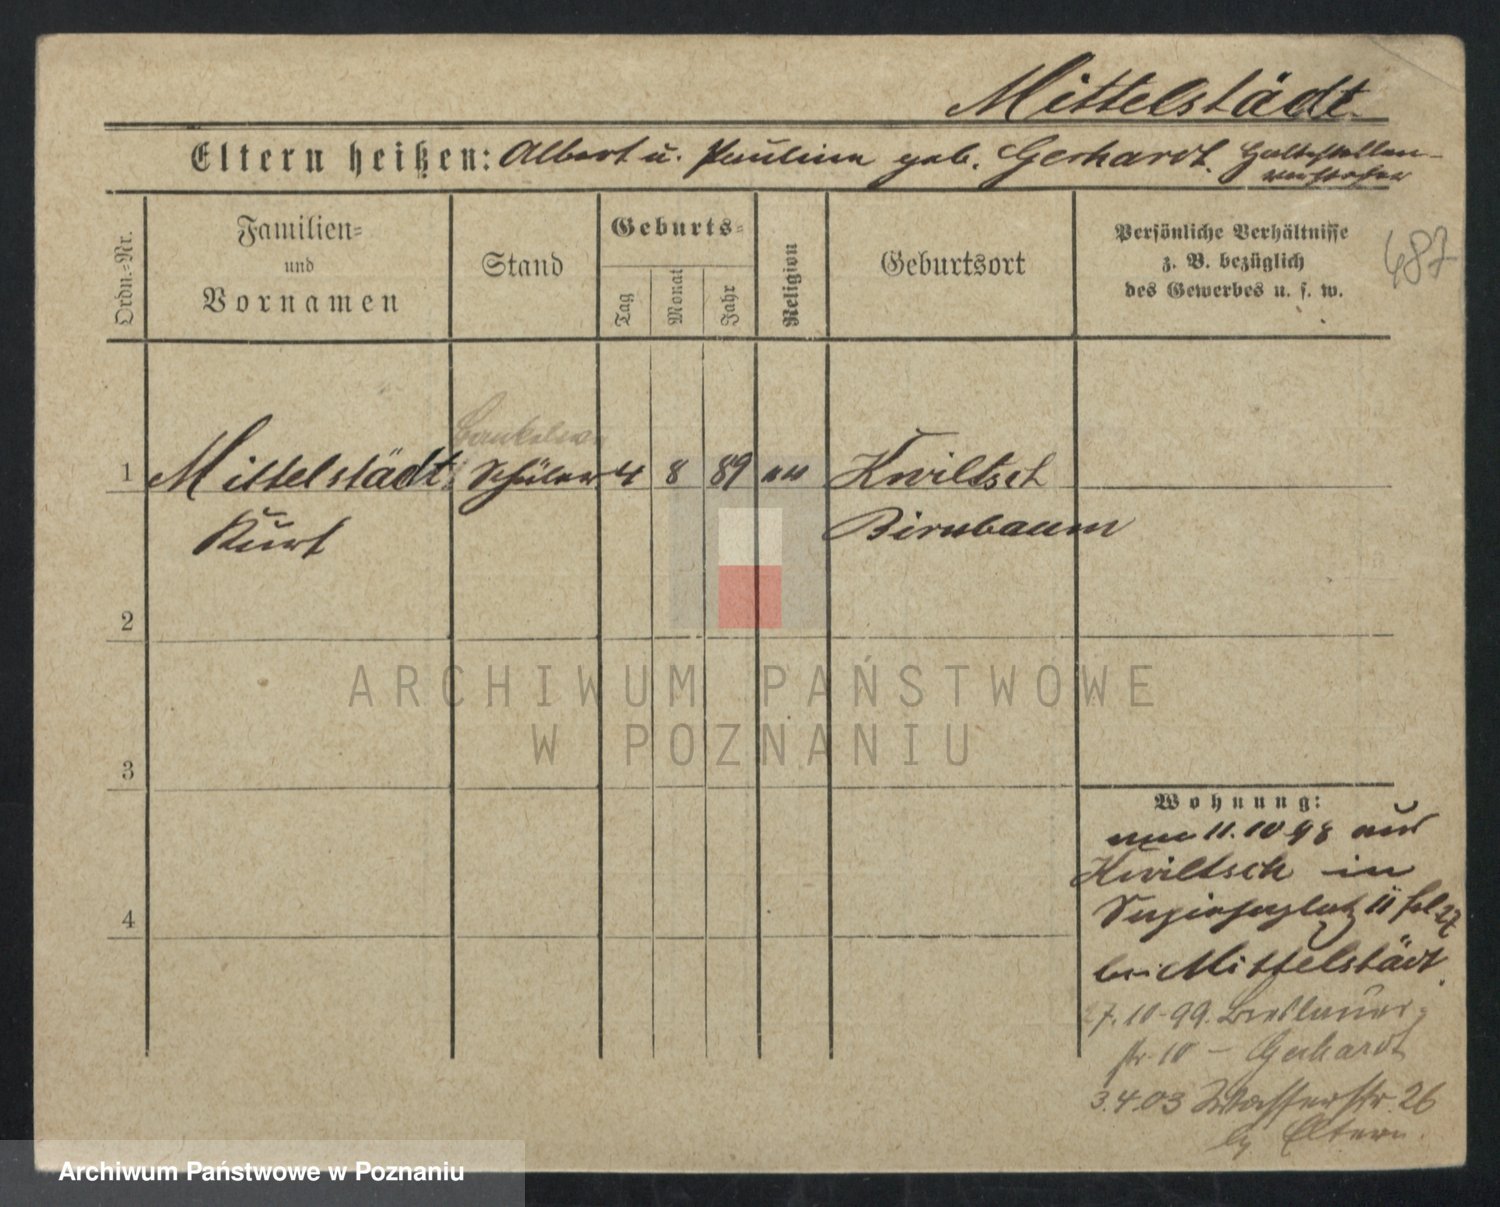 Mittelstädt
Eltern heißen: Albert u. Pauline geb. Gerhardt. Haltestellen-
vorsteher
Ordn.-Nr.
Familien-
und
Vornamen
Stand
Geburts-
Tag
Monat
Jahr
Religion
Geburtsort
Persönliche Verhältnisse
z. B. bezüglich
des Gewerbes u. s. w.
487
1 Mittelstädt Schüler 4 8 89 Kwiltsch
Kurt Birnbaum
2
ARCHIWUM PAŃSTWOWE
W POZNANIU
3
4
Wohnung:
11.10 98 aus
Kwiltsch in
11
bei Mittelstädt.
7.10.99. Breslauer-
str 10 – Gerhardt
3.4.03 Wasserstr. 26
Eltern
Archiwum Państwowe w Poznaniu